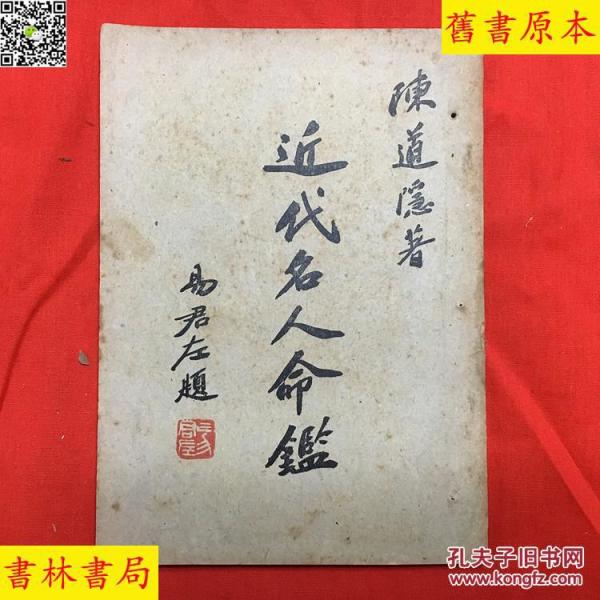 舊書原本
陳道隱著
近代名人命鑑
易君左題
書林書局
孔夫子旧书网
www.kongfz.com